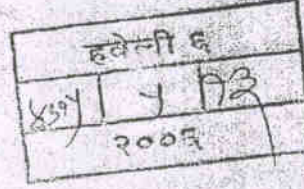 हवेली ६
४३१५ ५ १२
२००६